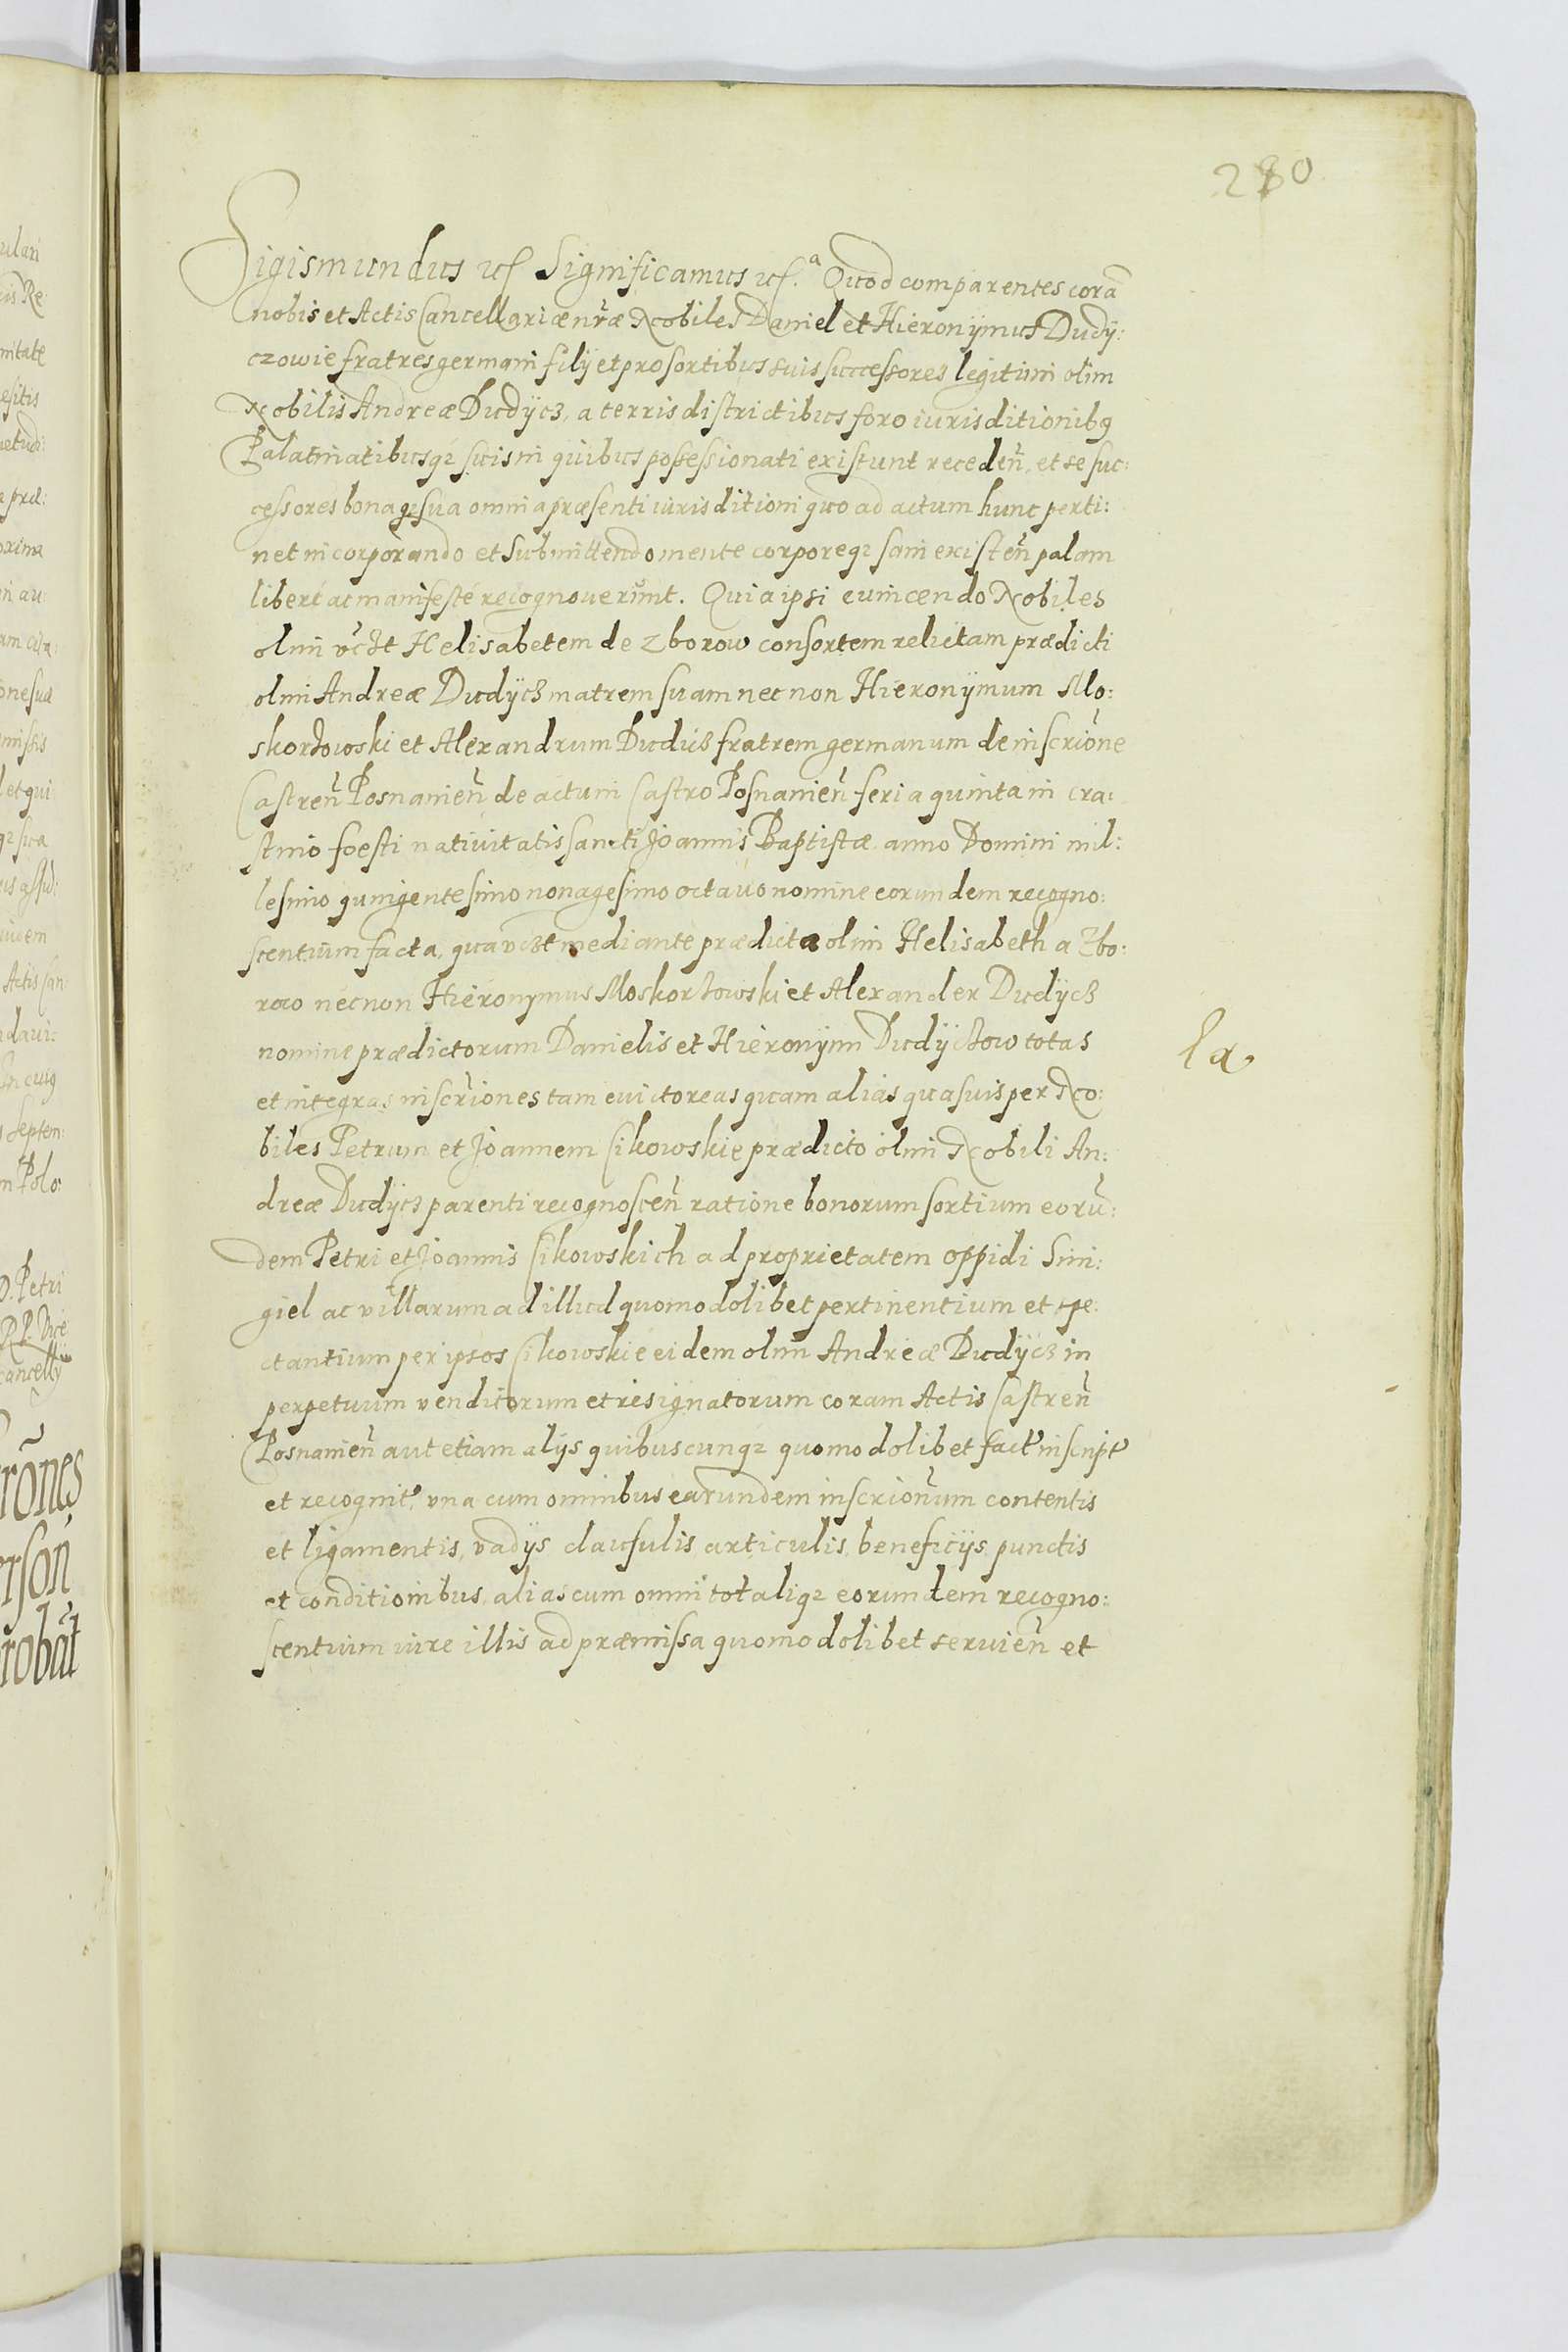 280
Sigismundus etc. Significamus etc.ª Quod comparentes corā
nobis et Actis Cancellariæ nr̄æ Nobiles Daniel et Hieronymus Dudÿ:
czowie fratres germani filij et pro sortibus suis successores legitimi olim
Nobilis Andreæ Dudÿcz, a terris districtibus foro iurisditionibq
Palatinatibusq; suis in quibus possessionati existunt receden̄, et se suc:
cessores bonaq; sua omnia præsenti iurisditioni quo ad actum hunc perti:
net incorporando et submittendo mente corporeq; sani existen̄ palam
liberé ac manifesté recognouerunt. Quia ipsi euincendo Nobiles
olim vczt Helisabetem de Zborow consortem relictam prædicti
olim Andreæ Dudÿcz matrem suam nec non Hieronymum Mo:
skorzowski et Alexandrum Dudicz fratrem germanum de inscrip̄one
Castren̄ Posnanien̄ de actu in Castro Posnanien̄ feria quinta in cra:
stino foesti natiuitatis sancti Joannis Baptistæ anno Domini mil:
lesimo quingentesimo nonagesimo octauo nomine eorundem recogno:
scentium facta, qua vczt mediante prædicta olim Helisabeth a Zbo:
row necnon Hieronymus Moskorzowski et Alexander Dudÿcz
nomine prædictorum Danielis et Hieronymi Dudÿczow totas
et integras inscr̄iones tam euictoreas quam alias quasuis per No:
biles Petrum et Joannem Cikowskie prædicto olim Nobili An:
dreæ Dudÿcz parenti recognoscen̄ ratione bonorum sortium eorū:
dem Petri et Joannis Cikowskich ad proprietatem oppidi Smi:
giel ac villarum ad illud quomodolibet pertinentium et spe:
ctantium per ipsos Cikowskie eidem olim Andreæ Dudÿcz in
perpetuum venditorum et resignatorum coram Actis Castren̄
Posnanien̄ aut etiam alijs quibuscunq; quomodolibet fact' inscript'
et recognit', vna cum omnibus earundem inscrionum contentis
et ligamentis, vadijs clausulis articulis, beneficijs punctis
et conditionibus, alias cum omni totaliq; eorundem recogno:
scentium iure illis ad præmissa quomodolibet seruien̄ et